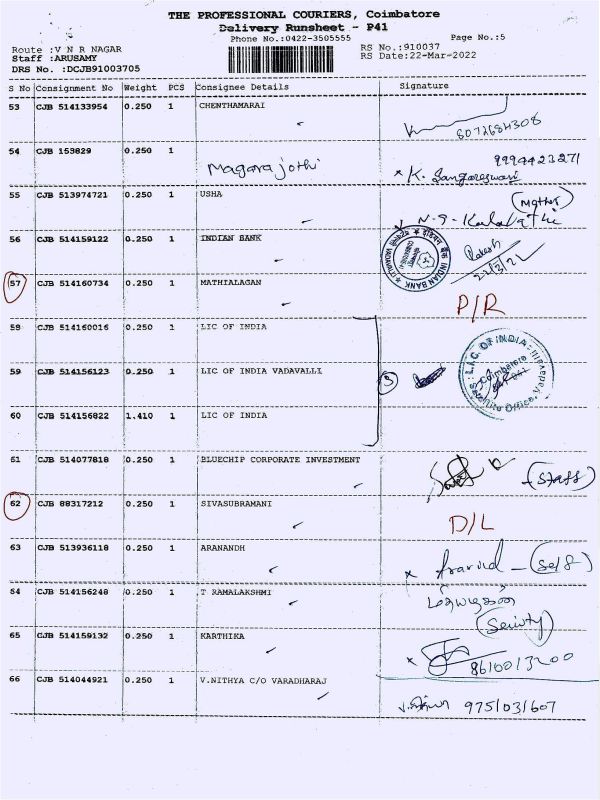 THE PROFESSIONAL COURIERS, Coimbatore
Delivery Runsheet - P41
Phone No.:0422-3505555 Page No.:5
Route :V N R NAGAR RS No.:910037
Staff :ARUSAMY RS Date:22-Mar-2022
DRS No. :DCJB91003705
S No Consignment No Weight PCS Consignee Details Signature
53 CJB 514133954 0.250 1 CHENTHAMARAI
8072684308
54 CJB 153829 0.250 1 Magarajothi 9994423271
K. Sangareswari
55 CJB 513974721 0.250 1 USHA (Mother)
N.S. Kalavathi
56 CJB 514159122 0.250 1 INDIAN BANK
INDIAN BANK
Rakesh
22/3/22
57 CJB 514160734 0.250 1 MATHIALAGAN P/R
58 CJB 514160016 0.250 1 LIC OF INDIA
59 CJB 514156123 0.250 1 LIC OF INDIA VADAVALLI 3
L.I.C. OF INDIA
Coimbatore
Satellite Office, Vadavalli
60 CJB 514156822 1.410 1 LIC OF INDIA
61 CJB 514077818 0.250 1 BLUECHIP CORPORATE INVESTMENT (Staff)
62 CJB 88317212 0.250 1 SIVASUBRAMANI D/L
63 CJB 513936118 0.250 1 ARANANDH Aravind - (Self)
64 CJB 514156248 0.250 1 T RAMALAKSHMI
(Seivty)
65 CJB 514159132 0.250 1 KARTHIKA 8610013200
66 CJB 514044921 0.250 1 V.NITHYA C/O VARADHARAJ
வ.நித்யா 9751031607